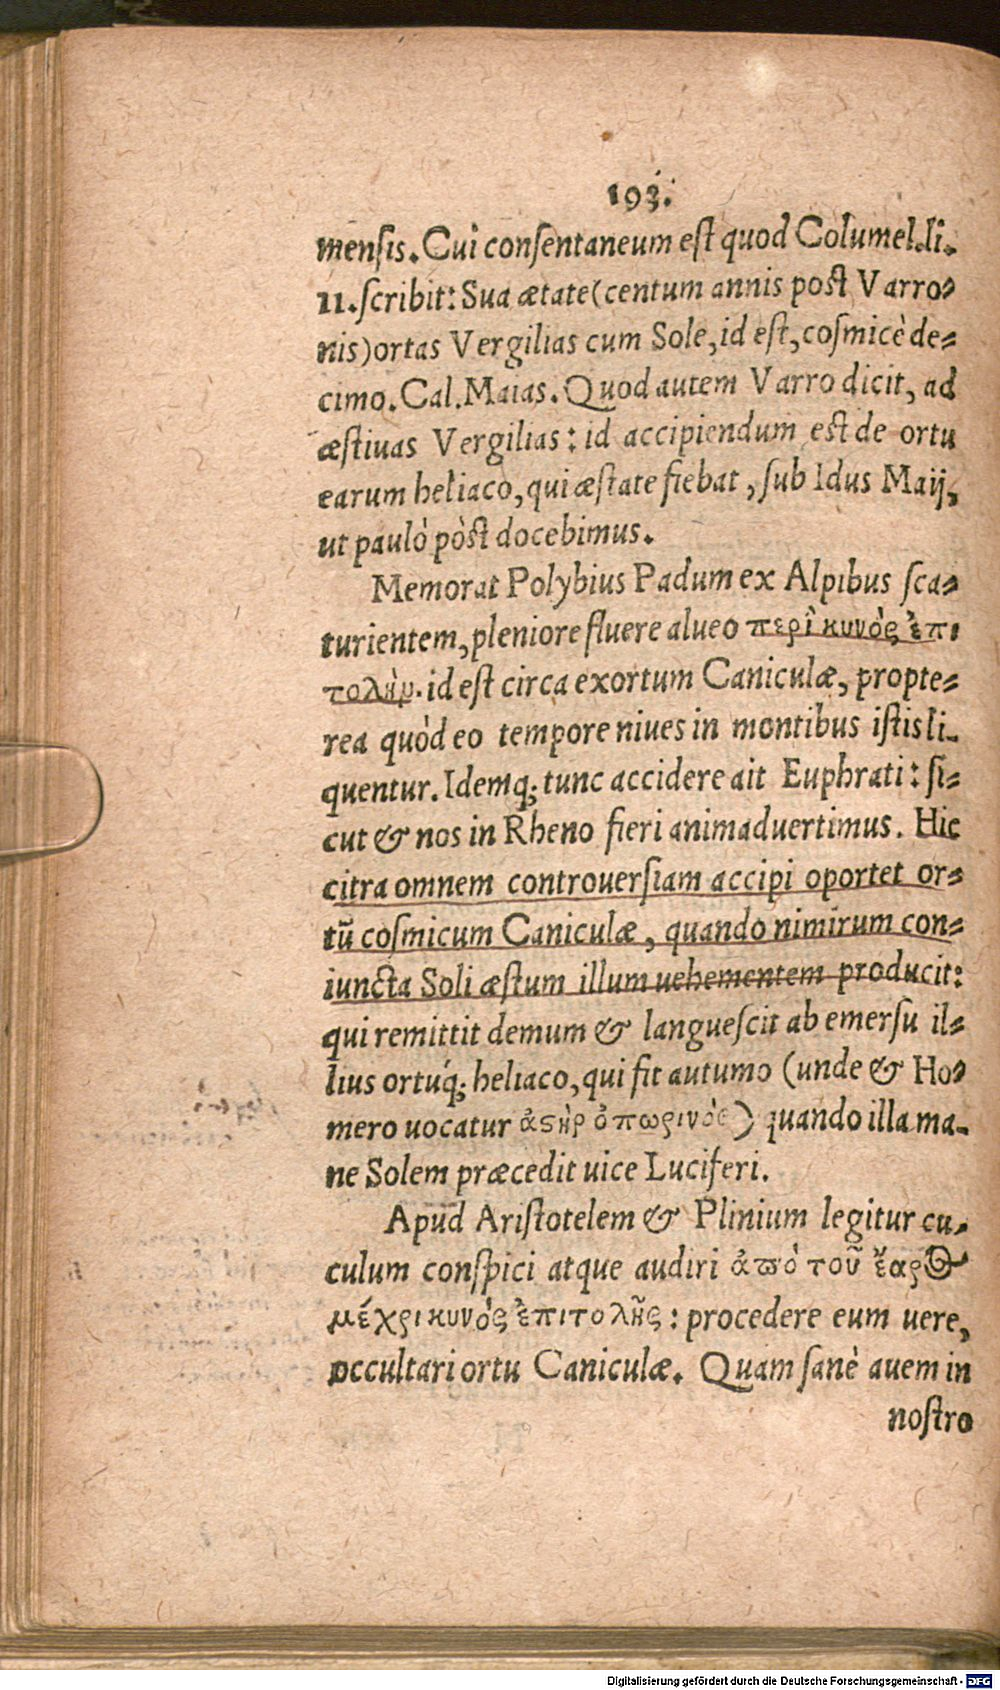 193.
mensis. Cui consentaneum est quod Columel. li.
11. scribit: Sua ætate (centum annis post Varro-
nis) ortas Vergilias cum Sole, id est, cosmicè de-
cimo. Cal. Maias. Quod autem Varro dicit, ad
æstiuas Vergilias: id accipiendum est de ortu
earum heliaco, qui æstate fiebat, sub Idus Maij,
ut paulò pòst docebimus.
Memorat Polybius Padum ex Alpibus sca-
turientem, pleniore fluere alueo περὶ κυνὸς ἐπι
τολὴν. id est circa exortum Caniculæ, propte-
rea quòd eo tempore niues in montibus istis li-
quentur. Idemq; tunc accidere ait Euphrati: si-
cut & nos in Rheno fieri animaduertimus. Hic
citra omnem controuersiam accipi oportet or-
tũ cosmicum Caniculæ, quando nimirum con-
iuncta Soli æstum illum uehementem producit:
qui remittit demum & languescit ab emersu il-
lius ortuq́; heliaco, qui fit autumo (unde & Ho-
mero uocatur ἀϛὴρ ὀπωρινός) quando illa ma-
ne Solem præcedit uice Luciferi.
Apud Aristotelem & Plinium legitur cu-
culum conspici atque audiri ἀπὸ τοῦ ἔαρος
μέχρι κυνὸς ἐπιτολῆς: procedere eum uere,
occultari ortu Caniculæ. Quam sanè auem in
nostro
Digitalisierung gefördert durch die Deutsche Forschungsgemeinschaft - DFG